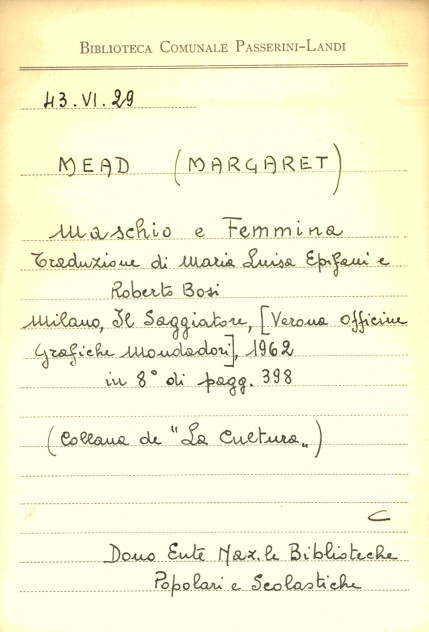 BIBLIOTECA COMUNALE PASSERINI-LANDI
43.VI.29
MEAD (MARGARET)
Maschio e Femmina
Traduzione di Maria Luisa Epifani e
Roberto Bosi
Milano, Il Saggiatore, [Verona Officine
Grafiche Mondadori], 1962
in 8° di pagg. 398
(Collana de "La Cultura„)
C
Dono Ente Naz.le Biblioteche
Popolari e Scolastiche